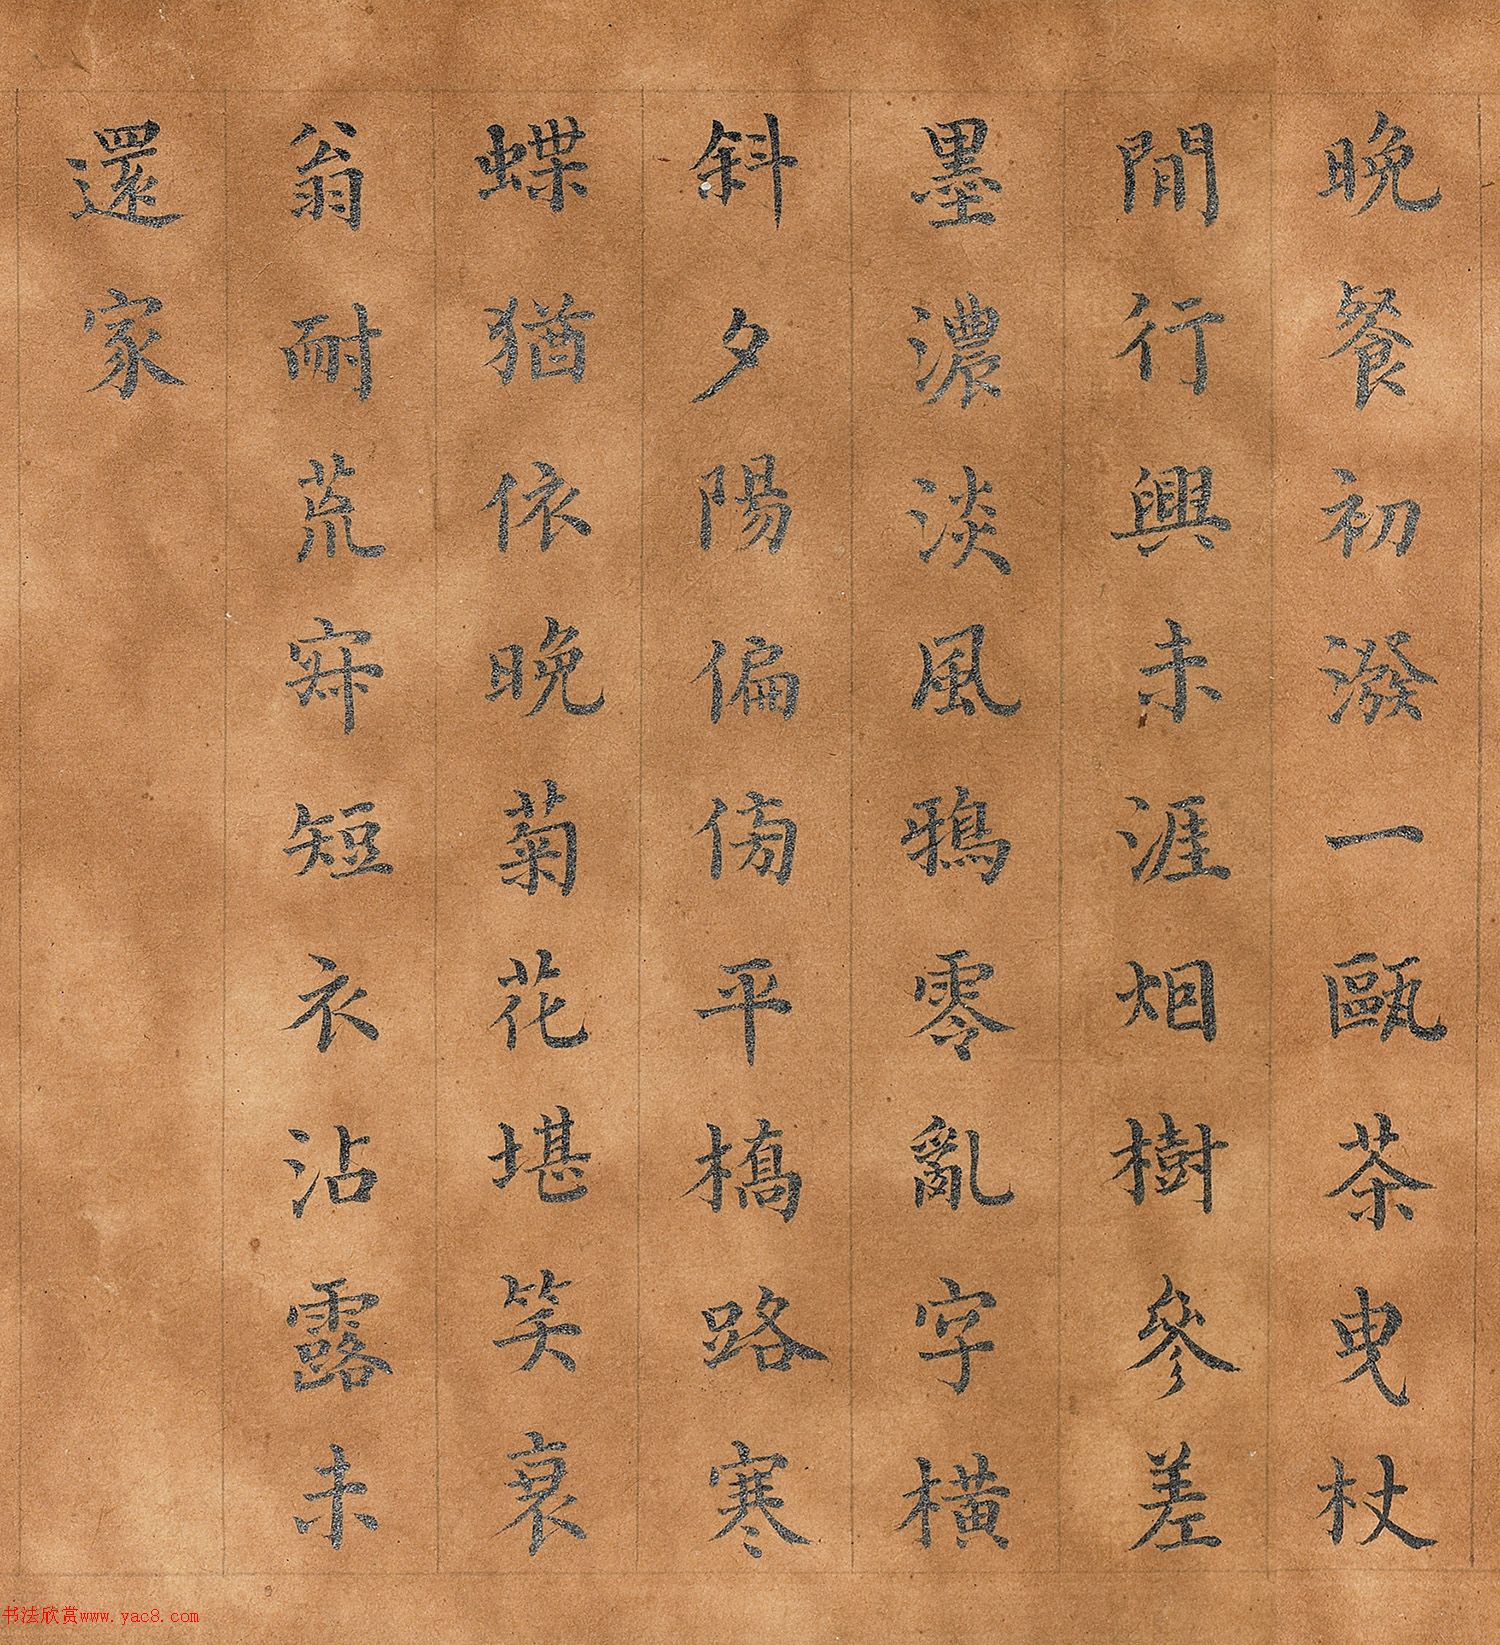 晚餐初潑一甌茶曳杖
閒行興未涯烟樹參差
墨濃淡風鴉零亂字橫
斜夕陽偏傍平橋路寒
蝶猶依晚菊花堪笑衰
翁耐荒寂短衣沾露未
還家
书法欣赏www.yac8.com